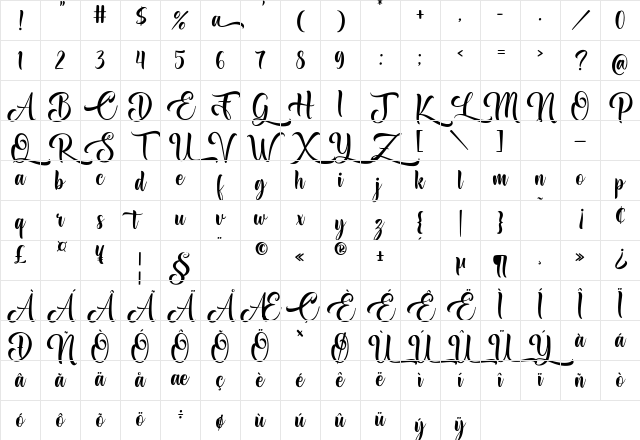 ! " # $ % a, ' ( ) * + , - . / 0
1 2 3 4 5 6 7 8 9 : ; < = > ? @
A B C D E F G H I J K L M N O P
Q R S T U V W X Y Z [ \ ] –
a b c d e f g h i j k l m n o p
q r s t u v w x y z { | } ~ ¡ ¢
£ ¤ ¥ ¦ § ¨ © « ® ± µ ¶ · » ¿
À Á Â Ã Ä Å Æ Ç È É Ê Ë Ì Í Î Ï
Ð Ñ Ò Ó Ô Õ Ö × Ø Ù Ú Û Ü Ý à á
â ã ä å æ ç è é ê ë ì í î ï ñ ò
ó ô õ ö ÷ ø ù ú û ü ý ÿ